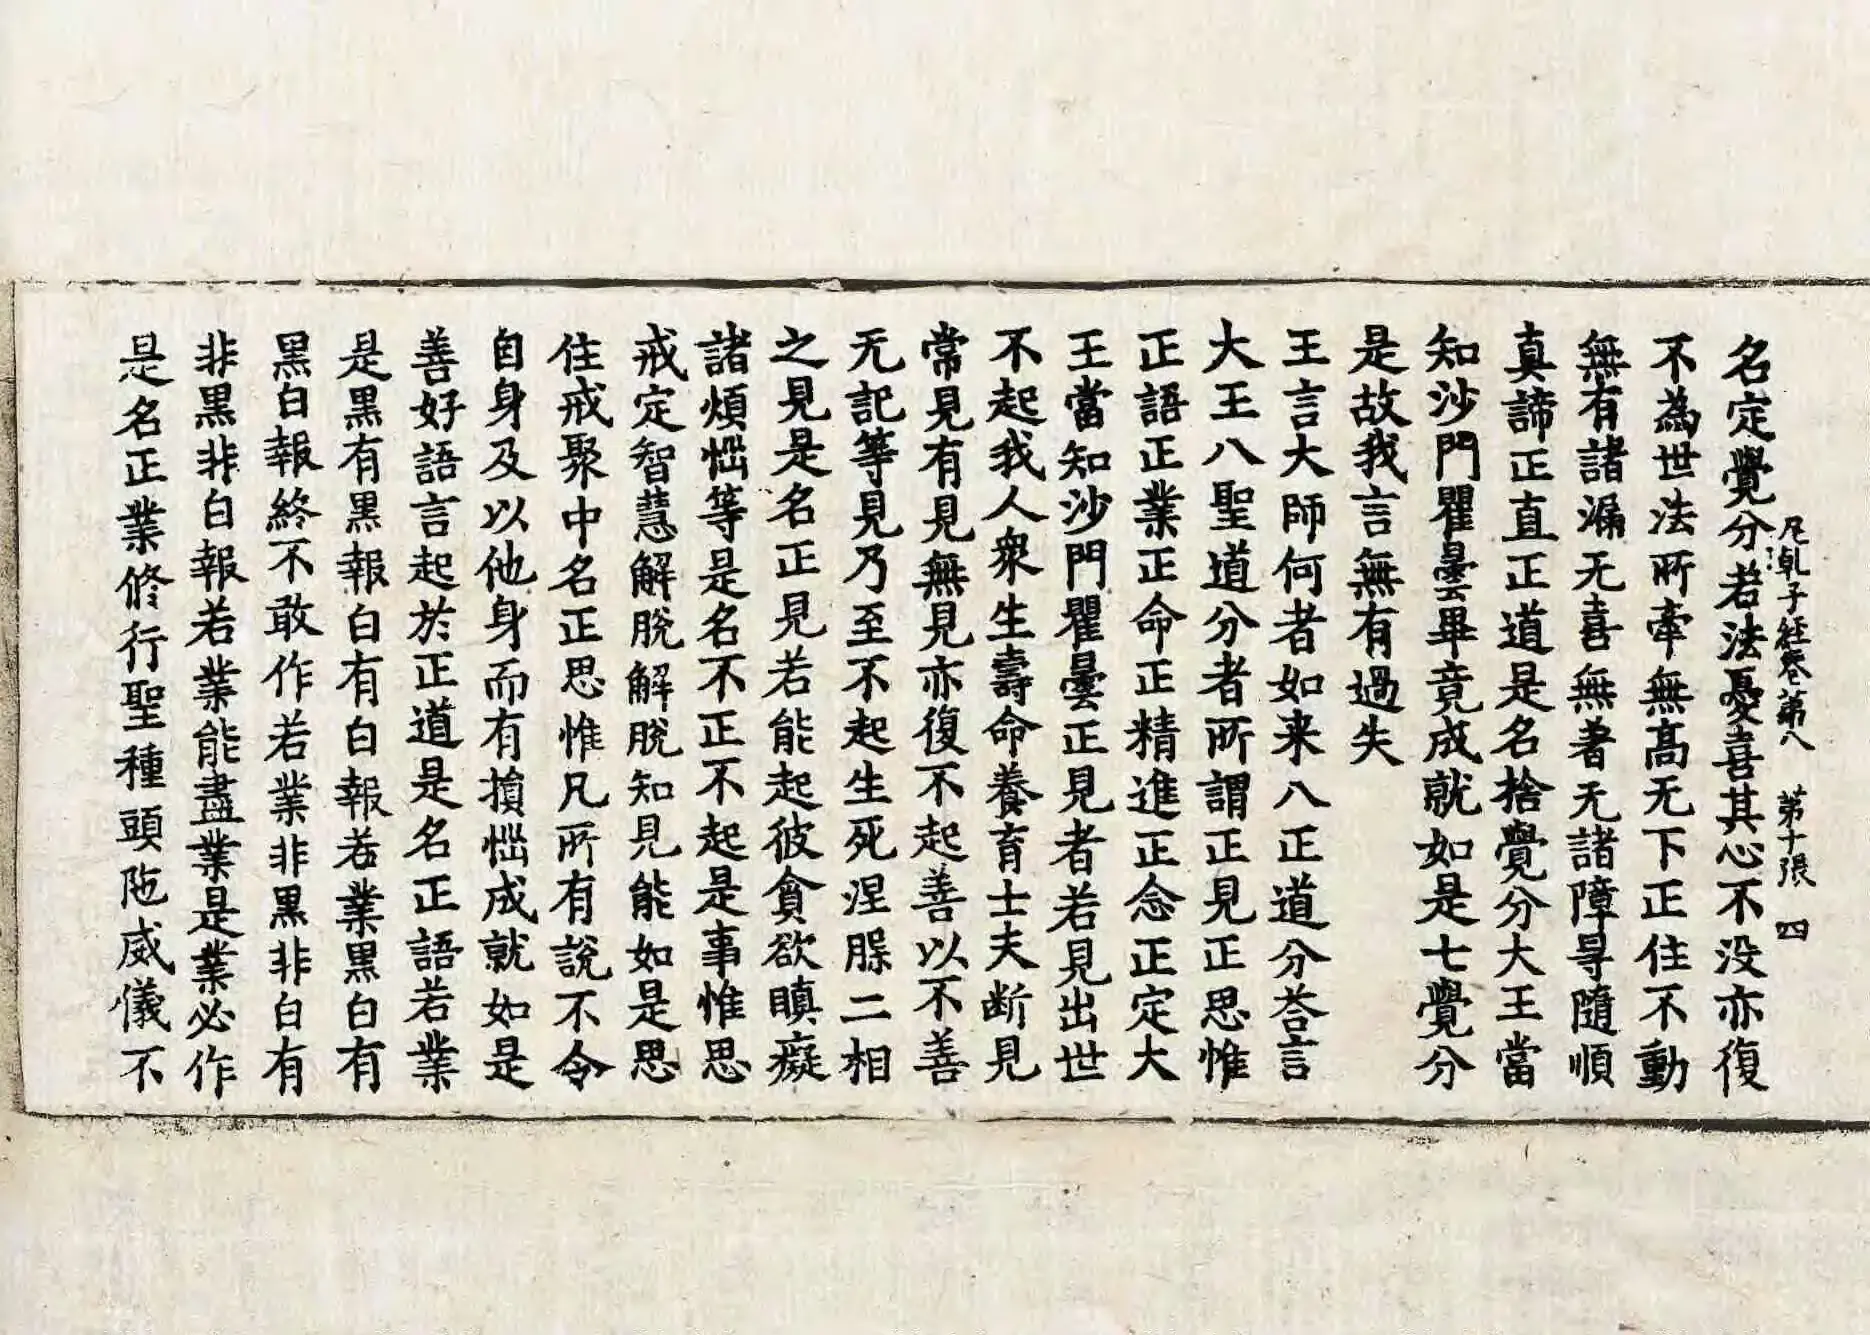 尼乹子經卷第八　第十張　四
名定覺分若法憂喜其心不没亦復
不為世法所牽無高无下正住不動
無有諸漏无喜無著无諸障㝵隨順
真諦正直正道是名捨覺分大王當
知沙門瞿曇畢竟成就如是七覺分
是故我言無有過失
王言大師何者如来八正道分荅言
大王八聖道分者所謂正見正思惟
正語正業正命正精進正念正定大
王當知沙門瞿曇正見者若見出世
不起我人衆生壽命養育士夫断見
常見有見無見亦復不起善以不善
无記等見乃至不起生死涅槃二相
之見是名正見若能起彼貪欲瞋癡
諸煩惱等是名不正不起是事惟思
戒定智慧解脫解脫知見能如是思
住戒聚中名正思惟凡所有說不令
自身及以他身而有損惱成就如是
善好語言起於正道是名正語若業
是黒有黒報白有白報若業黒白有
黒白報終不敢作若業非黒非白有
非黒非白報若業能盡業是業必作
是名正業修行聖種頭陁威儀不